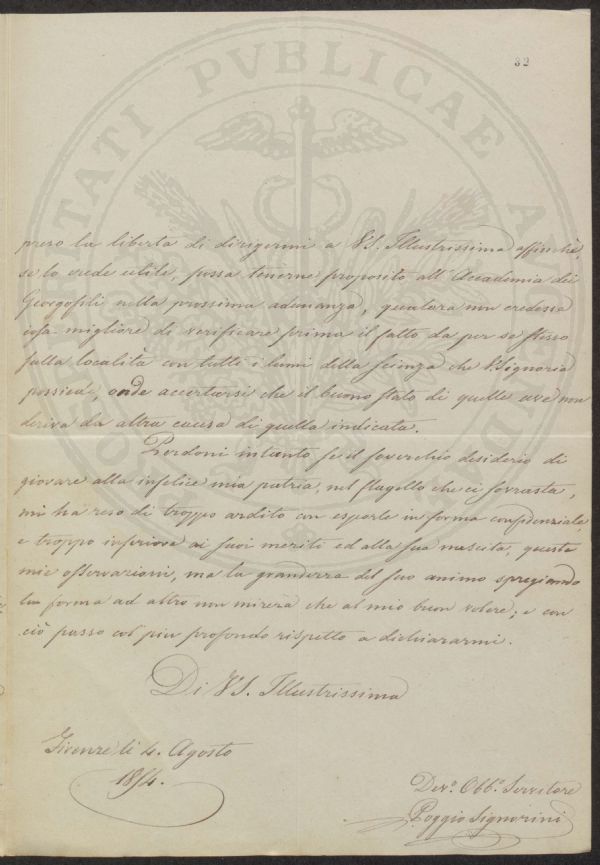 32
PROSPERITATI PVBLICAE AVGENDAE
preso la libertà di dirigermi a VS. Illustrissima affinchè,
se lo crede utile, possa tenerne proposito all'Accademia dei
Georgofili nella prossima adunanza, qualora non credesse
cosa migliore di verificare prima il fatto da per se stesso
sulla località con tutti i lumi della scienza che V. Signoria
possiede, onde accertarsi che il buono stato di quelle uve non
deriva da altra causa di quella indicata.
Perdoni intanto se il soverchio desiderio di
giovare alla infelice mia patria, nel flagello che ci sovrasta,
mi ha reso di troppo ardito con esporle in forma confidenziale
e troppo inferiore ai suoi meriti ed alla sua nascita, queste
mie osservazioni, ma la grandezza del suo animo spregiando
la forma ad altro non mirerà che al mio buon volere; e con
ciò passo col più profondo rispetto a dichiararmi.
Di VS. Illustrissima
Firenze li 4. Agosto
1854.
Dev.º Obb.º Servitore
Poggio Signorini